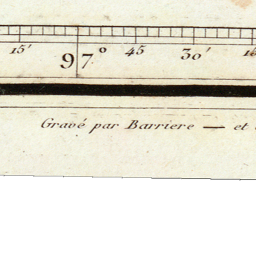 15' 97° 45 30'
Gravé par Barriere — et